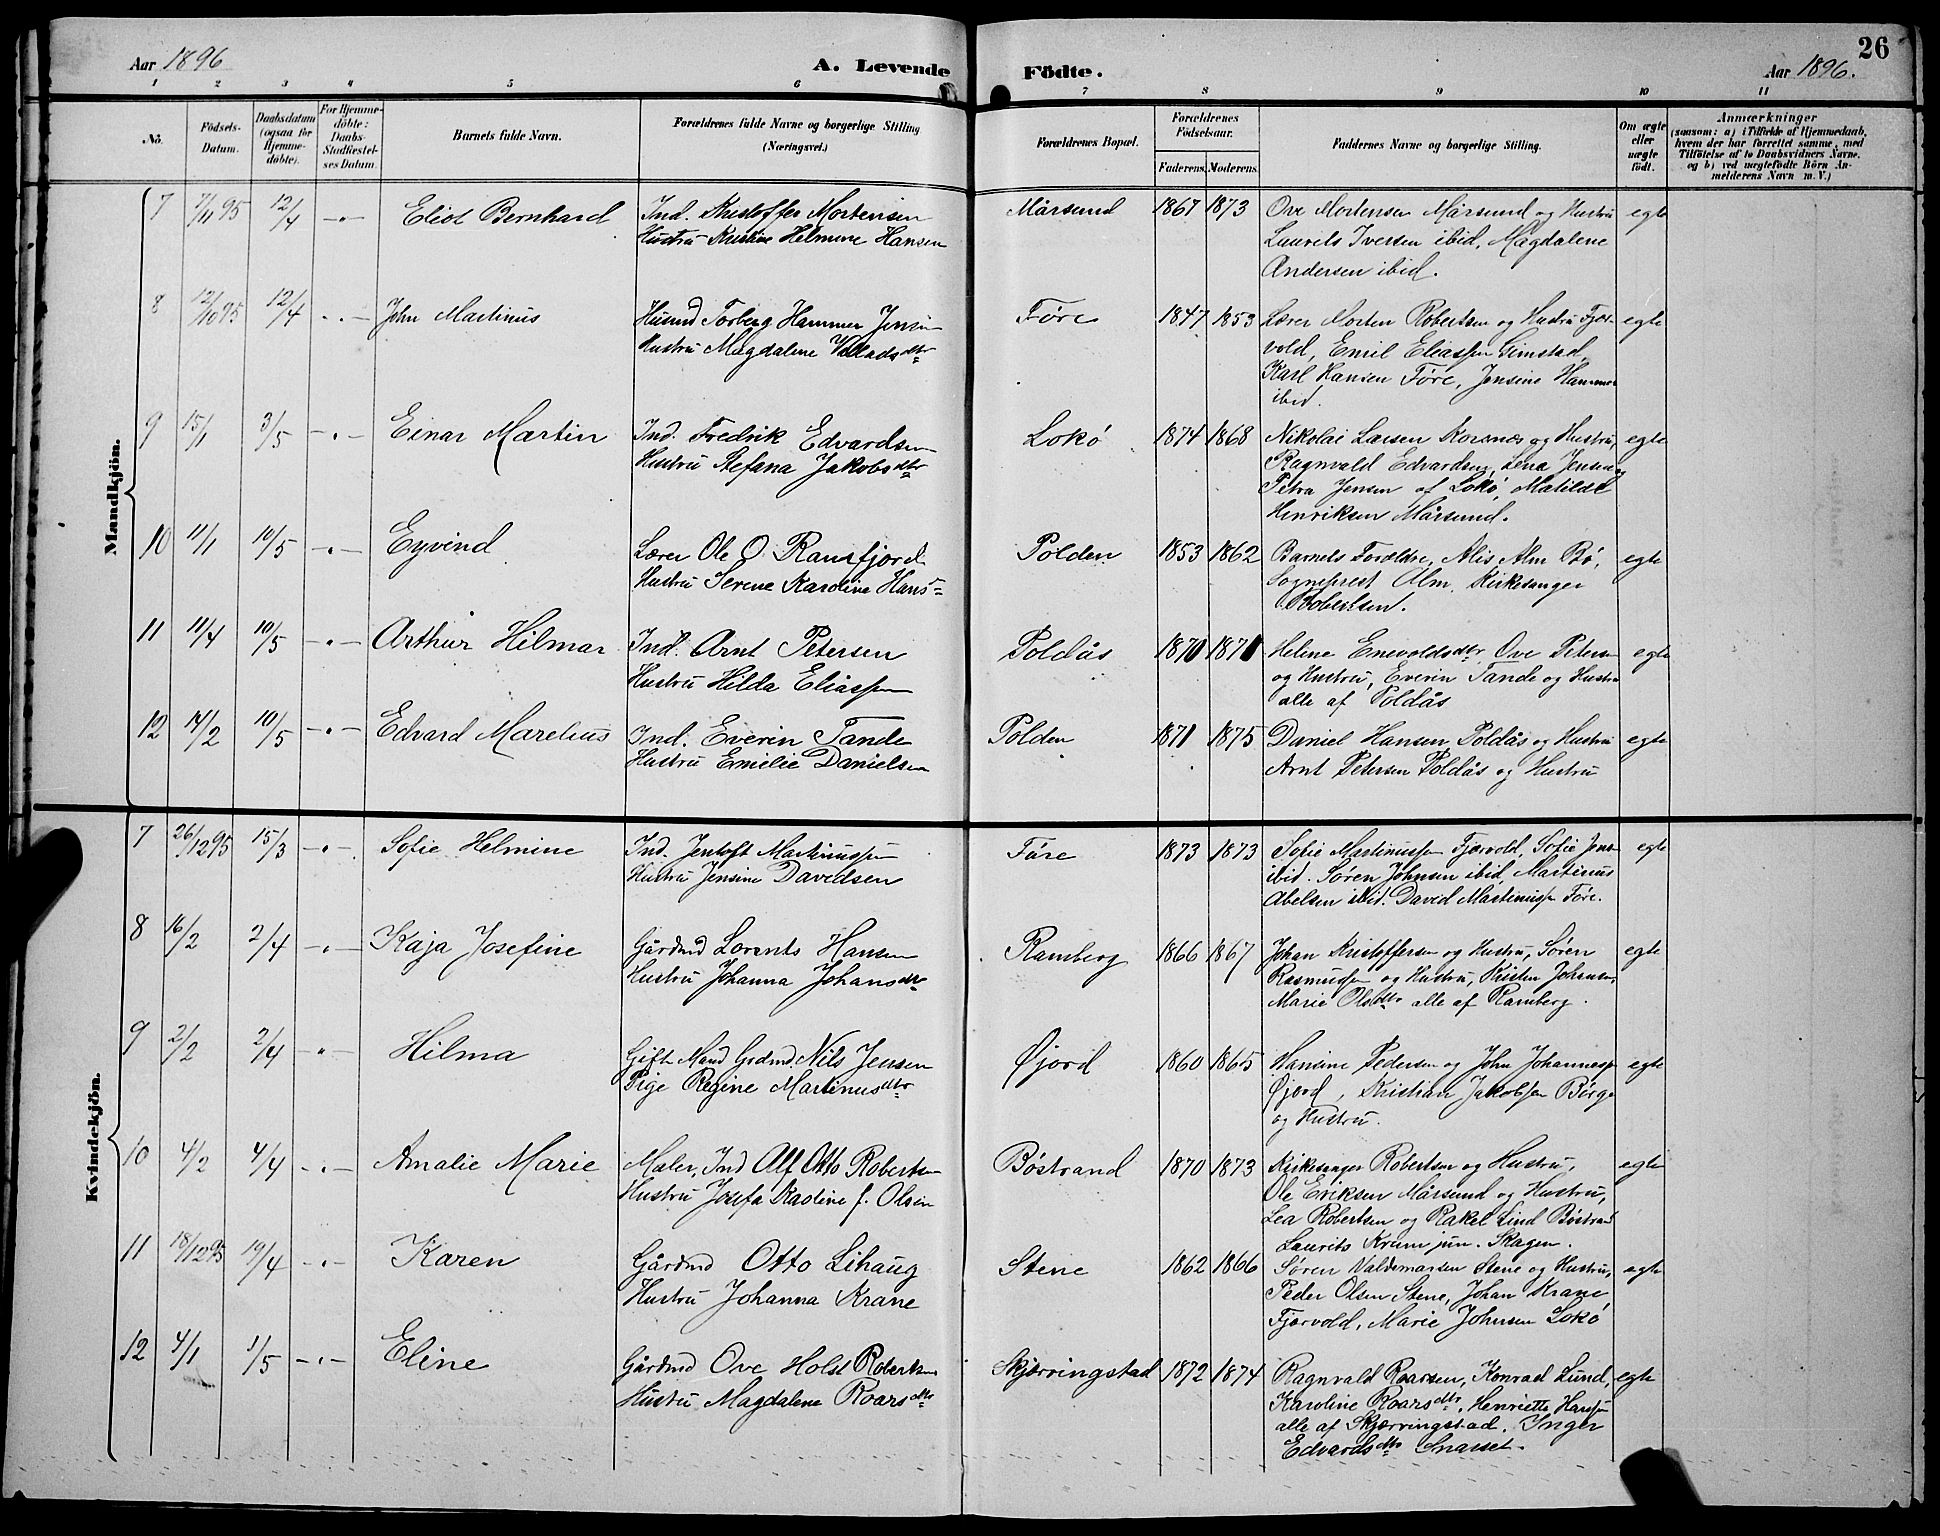 Aar 1896 A. Levende Födte. Aar 1896. 26
1 2 3 4 5 6 7 8 9 10 11
No. Födsels-Datum. Daabsdatum (ogsaa för Hjemme-döbte). For Hjemme-döbte: Daabs-Stadfæstel-ses Datum. Barnets fulde Navn. Forældrenes fulde Navne og borgerlige Stilling (Næringsvei.) Forældrenes Bopæl. Forældrenes Födselsaar. Faderens. Moderens. Faddernes Navne og borgerlige Stilling. Om ægte eller uægte födt. Anmærkninger (saasom: a) i Tilfælde af Hjemmedaab, hvem der har forrettet samme, med Tilföielse af to Daabsvidners Navne, og b) ved uægtefödte Börn An-melderens Navn m. V.)
Mandkjön.
7 7/11 95 12/4 -„- Eliot Bernhard Ind. Kristoffer Mortensen Mårsund 1867 1873 Ove Mortensen Mårsund og Hustru egte
Hustru Kristine Helmine Hansen Laurits Iversen ibid, Magdalene
Andersen ibid.
8 12/10 95 12/4 -„- John Martinus Husmd Torberg Hammer Jensen Føre 1847 1853 Lærer Morten Robertsen og Hustru Fjær- egte
Hustru Magdalene Valladsdtr vold, Emil Eliassen Gimstad,
Karl Hansen Føre, Jensine Hammer
ibid.
9 15/1 3/5 -„- Einar Martin Ind. Fredrik Edvardsen Lokø 1874 1868 Nikolai Larsen Korsnes og Hustru, egte
Hustru Stefana Jakobsdtr Ragnvald Edvardsen, Lena Jensen og
Petra Jensen af Lokø, Matilde
Henriksen Mårsund.
10 11/1 10/5 -„- Eyvind Lærer Ole O. Ransfjord Polden 1853 1862 Barnets Forældre, Alis Alm Bø, egte
Hustru Serene Karoline Hans= Sogneprest Alm, Kirkesanger
Robertsen.
11 11/4 10/5 -„- Arthur Hilmar Ind. Arnt Petersen Poldås 1870 1871 Helene Enevoldsdtr, Ove Petersen egte
Hustru Hilda Eliassen og Hustru, Everin Tande og Hustru
alle af Poldås
12 14/2 10/5 -„- Edvard Marelius Ind. Everin Tande Polden 1871 1875 Daniel Hansen Poldås og Hustru egte
Hustru Emelie Danielsen Arnt Petersen Poldås og Hustru
Kvindekjön.
7 26/12 95 15/3 -„- Sofie Helmine Ind. Jentoft Martinussen Føre 1873 1873 Sofie Martinussen Fjærvold, Sofie Jensen egte
Hustru Jensine Davidsen ibid. Søren Johnsen ibid, Martinus
Abelsen ibid. David Martinussen Føre.
8 16/2 2/4 -„- Kaja Josefine Gårdmd Lorents Hansen Ramberg 1866 1867 Johan Kristoffersen og Hustru, Søren egte
Hustru Johanna Johansdtr Rasmussen og Hustru, Kristen Johansen,
Marie Olsdtr alle af Ramberg.
9 2/2 2/4 -„- Hilma Gift Mand Grdmd. Nils Jensen Øjord 1860 1865 Hansine Pedersen og John Johannessen egte
Pige Regine Martinusdtr Øjord, Kristian Jakobsen Børge
og Hustru.
10 4/2 4/4 -„- Amalie Marie Maler, Ind Alf Otto Robertsen Bøstrand 1870 1873 Kirkesanger Robertsen og Hustru, egte
Hustru Josefa Karoline f. Olsen Ole Eriksen Mårsund og Hustru,
Lea Robertsen og Rakel Lind Bøstrand
Laurits Krum jun. Skagen.
11 18/12 95 19/4 -„- Karen Gårdmd Otto Lihaug Stene 1862 1866 Søren Valdemarsen Stene og Hustru, egte
Hustru Johanna Krane Peder Olsen Stene, Johan Krane
Fjærvold, Marie Johnsen Lokø
12 4/1 1/5 -„- Eline Gårdmd Ove Holst Robertsen Skjærringstad 1872 1874 Ragnvald Roarsen, Konrad Lund, egte
Hustru Magdalene Roarsdtr Karoline Roarsdtr, Henriette Hansen
alle af Skjærringstad. Inger
Edvardsdtr Snarset.